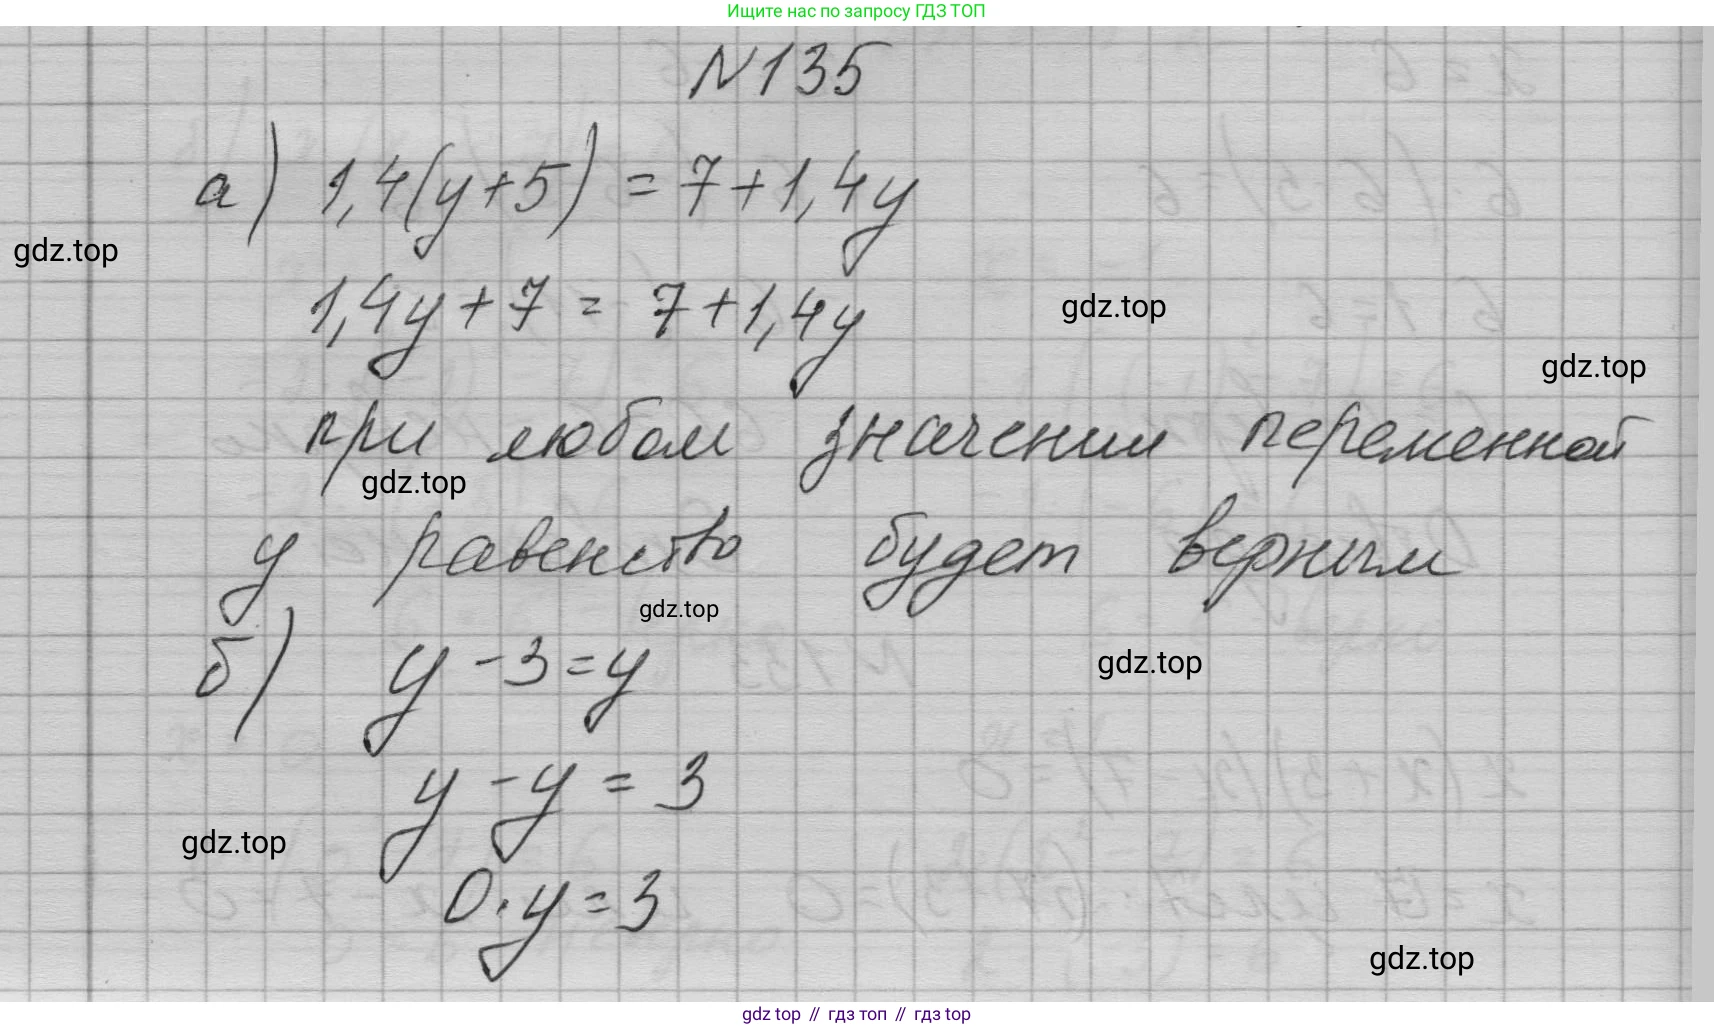 Ищите нас по запросу ГДЗ ТОП
N135
а) 1,4(y+5) = 7+1,4y
gdz.top
1,4y+7 = 7+1,4y
gdz.top
gdz.top
при любом значении переменной
gdz.top
y равенство будет верным
gdz.top
б) y-3=y
gdz.top
y-y=3
gdz.top
0·y=3
gdz.top
gdz top // гдз топ // gdz top